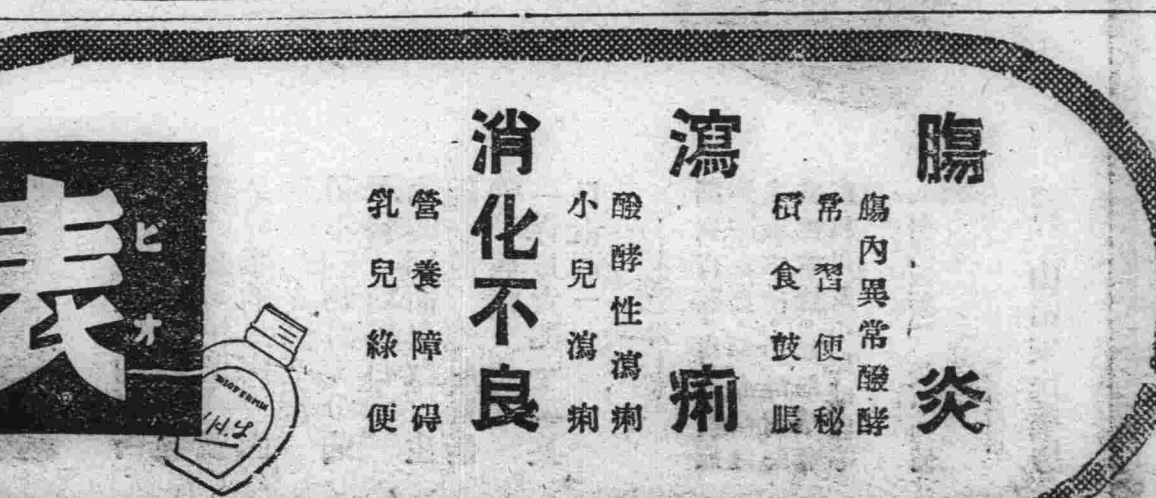 腸炎
腸內異常醱酵
常習便秘
積食鼓脹
瀉痢
醱酵性瀉痢
小兒瀉痢
消化不良
營養障碍
乳兒綠便
ビオ
表
BIOFERMIN